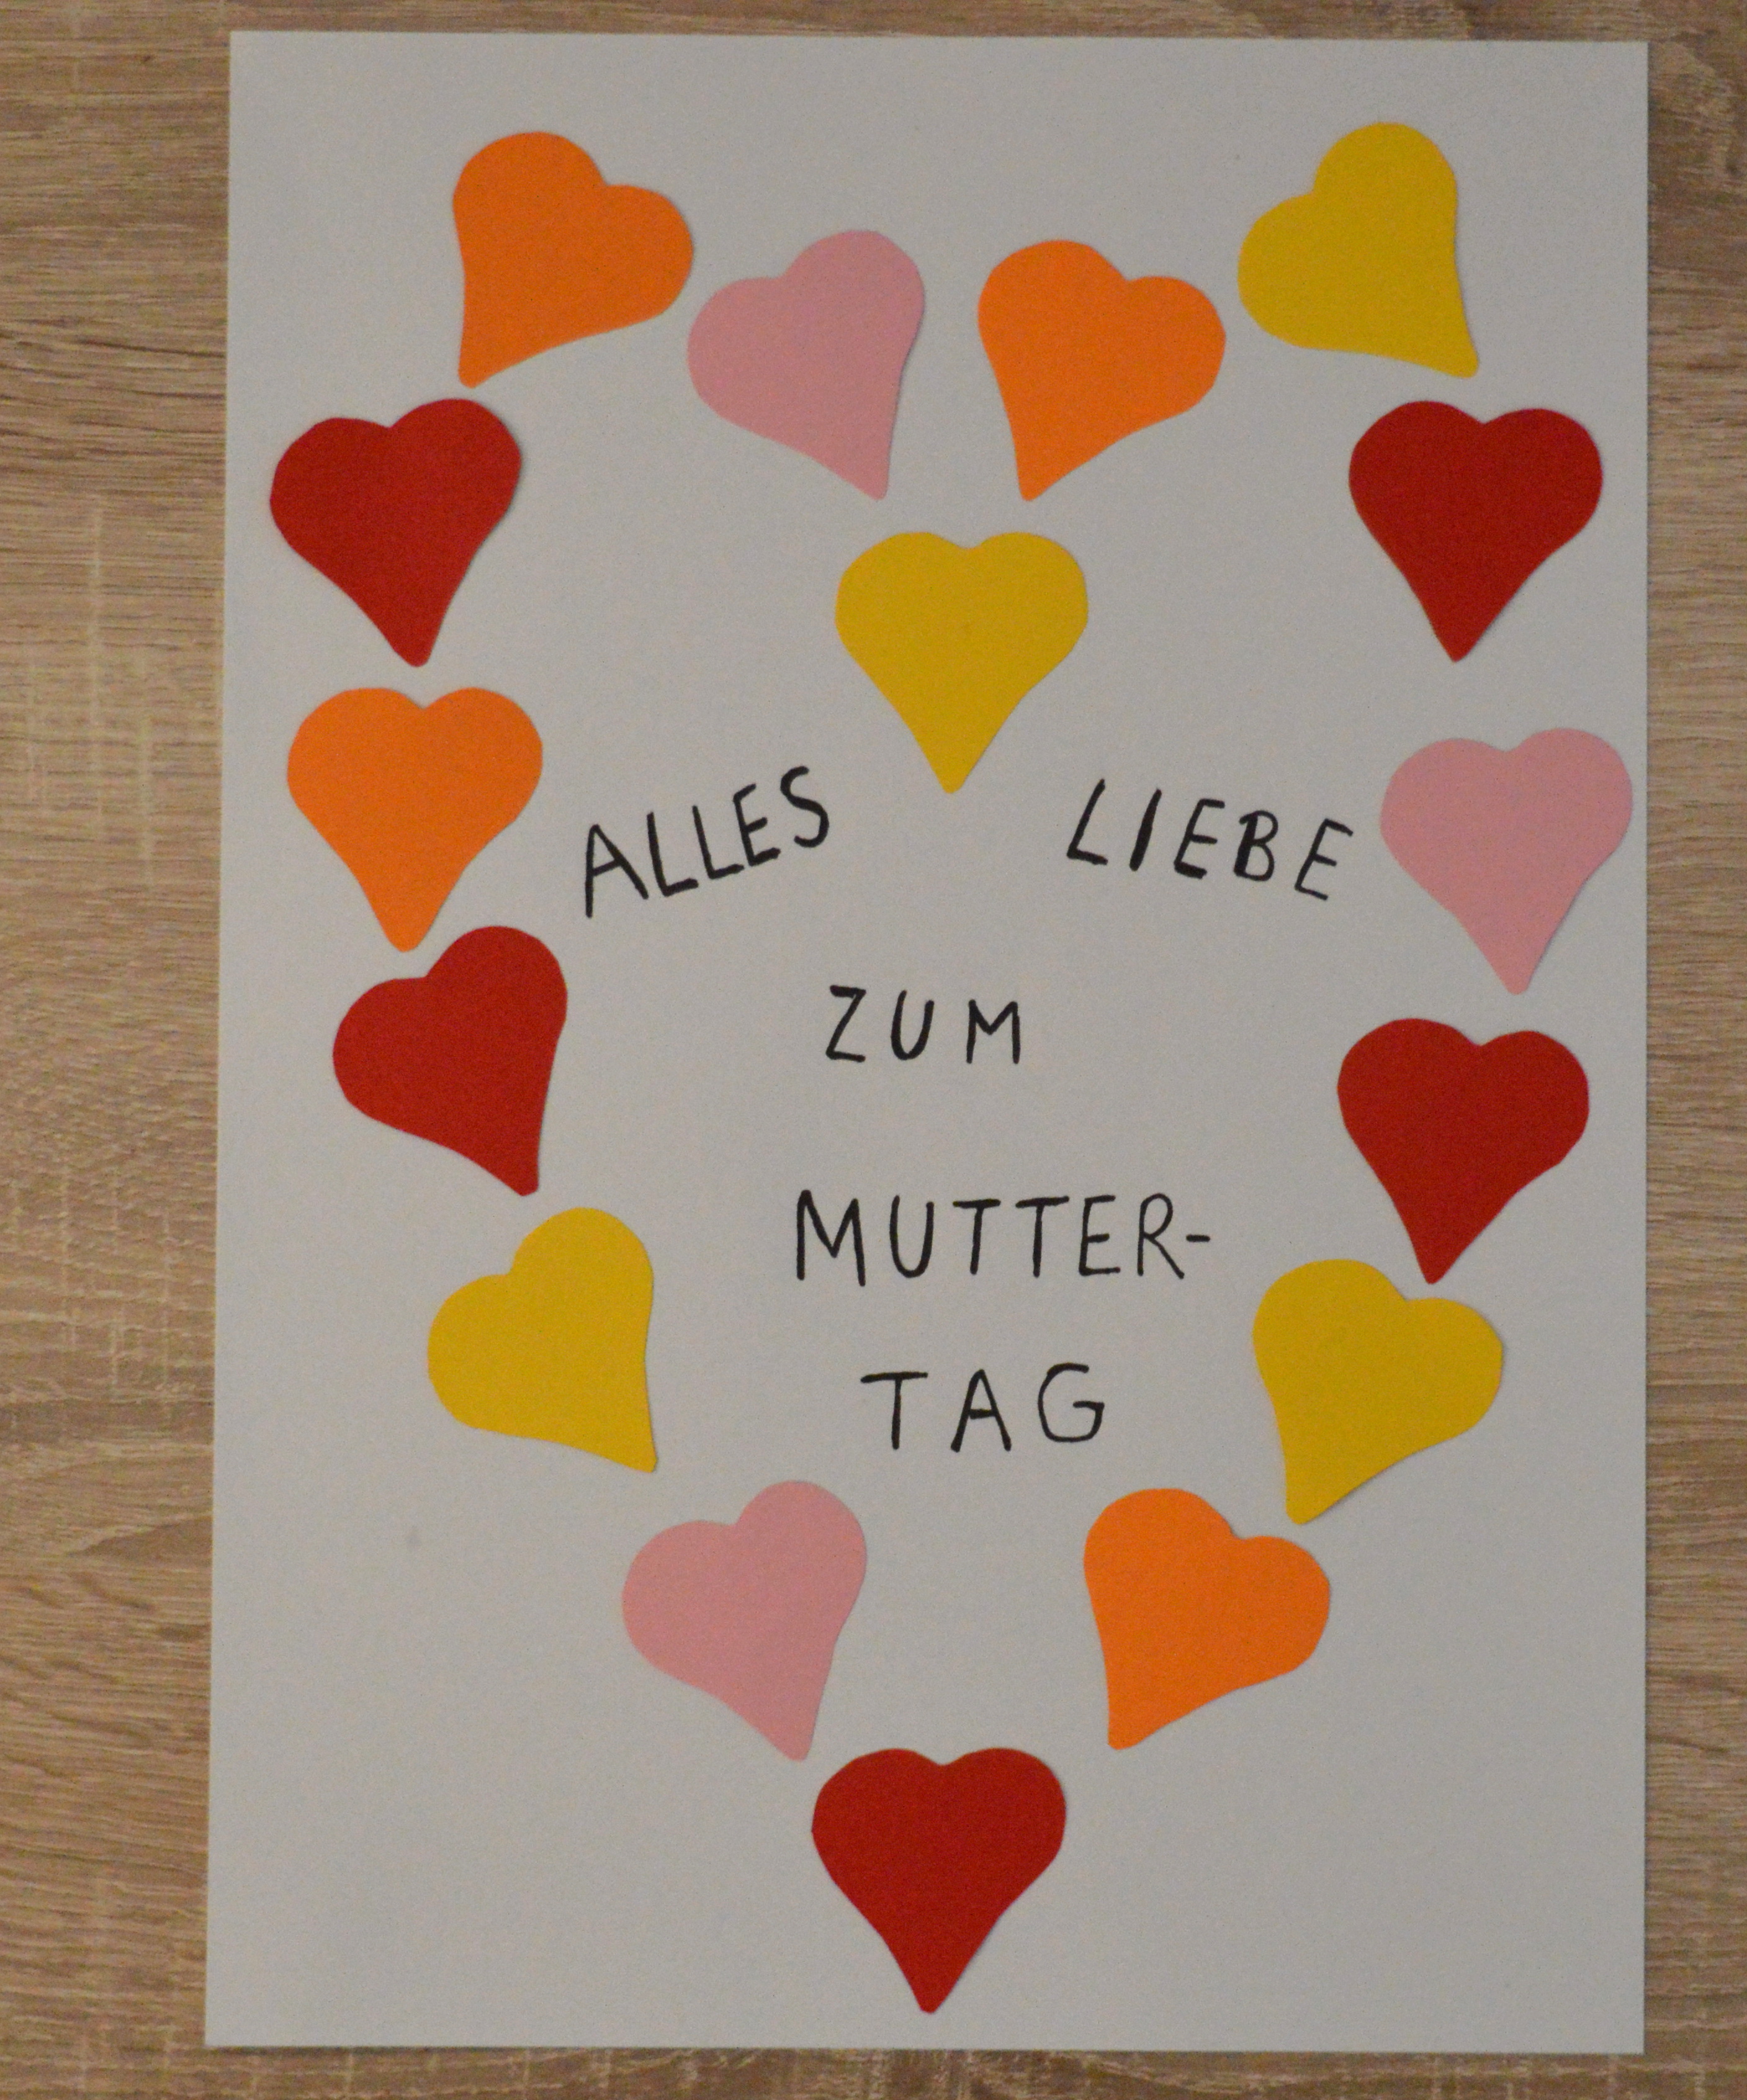 ALLES LIEBE
ZUM
MUTTER-
TAG